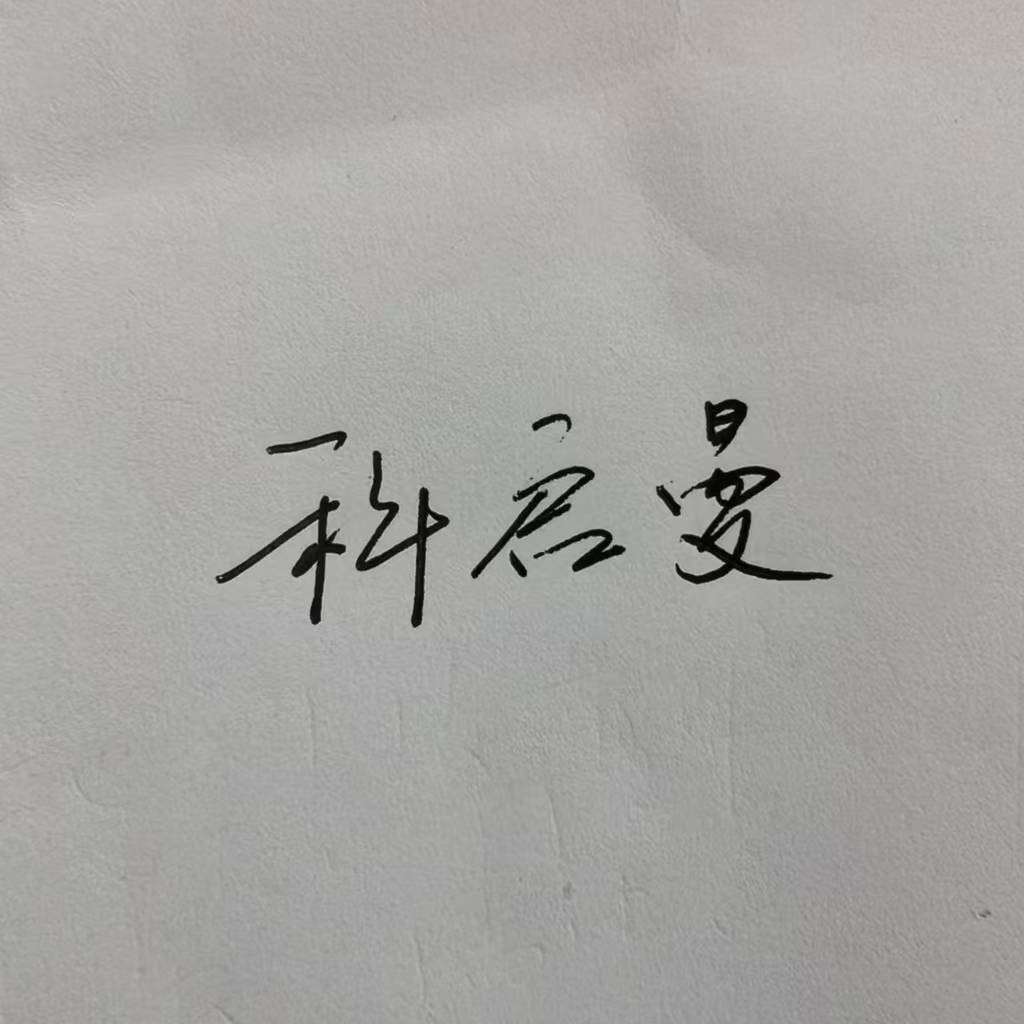 科启曼